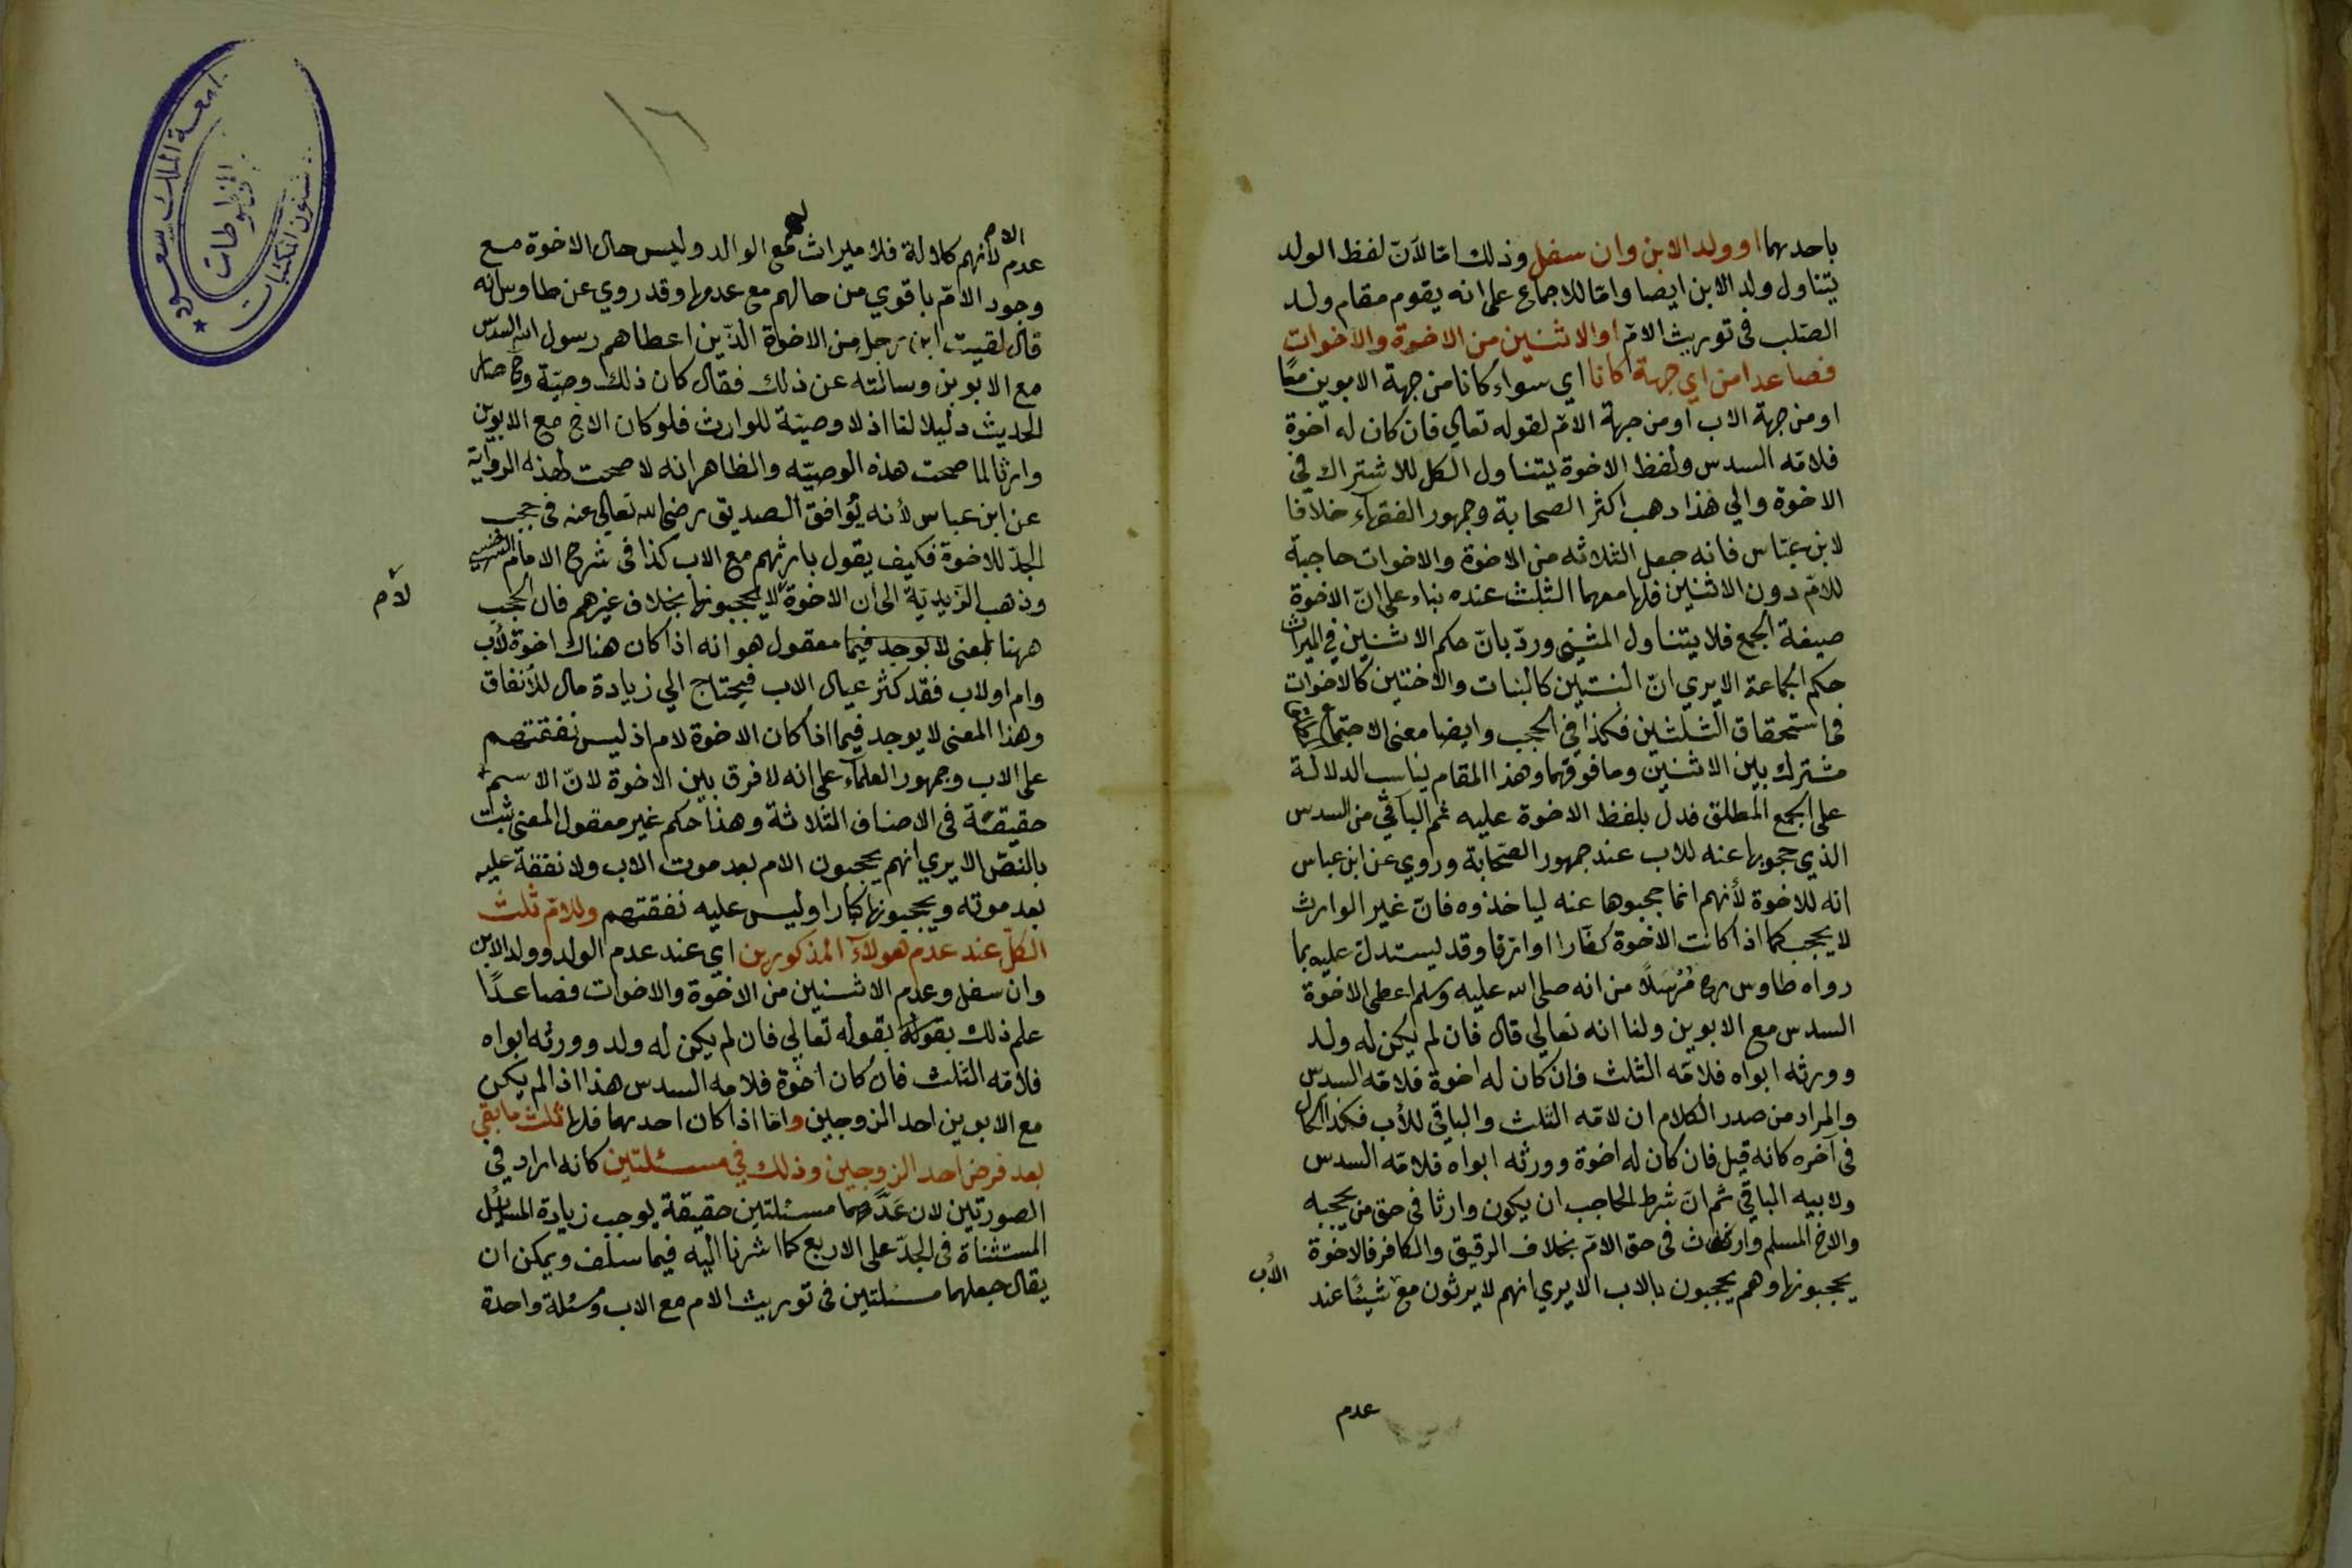 باحدهما او ولد الابن وان سفل وذلك امّا لانّ لفظ الولد
يتناول ولد الابن ايضا وامّا للاجماع على انه يقوم مقام ولد
الصّلب في توريث الامّ او الاثنين من الاخوة والاخوات
فصاعدا من اي جهة كانا اي سواء كانا من جهة الابوين معًا
او من جهة الاب او من جهة الامّ لقوله تعالي فان كان له اخوة
فلامّه السدس ولفظ الاخوة يتناول الكل للاشتراك في
الاخوة والي هذا ذهب اكثر الصحابة وجمهور الفقهاء خلافا
لابن عبّاس فانه جعل الثلاثه من الاخوة والاخوات حاجبة
للامّ دون الاثنين فلها معهما الثلث عنده بناء على انّ الاخوة
صيغة الجمع فلا يتناول المثني وردّ بانّ حكم الاثنين في الميراث
حكم الجماعة الايري انّ البنتين كالبنات والاختين كالاخوات
في استحقاق الثلثين فكذا في الحجب وايضا معنى الاجتماع
مشترك بين الاثنين وما فوقهما وهذا المقام يناسب الدلالة
على الجمع المطلق فدل بلفظ الاخوة عليه ثم الباقي من السدس
الذي حجبوها عنه للاب عند جمهور الصّحابة وروي عن ابن عباس
انه للاخوة لأنهم انما حجبوها عنه لياخذوه فانّ غير الوارث
لا يحجب كما اذا كانت الاخوة كفّارا او ارقا وقد يستدل عليه بما
رواه طاوس رح مُرْسَلًا من انه صلى الله عليه وسلم اعطى الاخوة
السدس مع الابوين ولنا انه تعالي قال فان لم يكن له ولد
وورثه ابواه فلامّه الثلث فان كان له اخوة فلامّه السدس
والمراد من صدر الكلام ان لامّه الثلث والباقي للأب فكذا الحال
في آخره كانه قيل فان كان له اخوة وورثه ابواه فلامّه السدس
ولابيه الباقي ثم انّ شرط الحاجب ان يكون وارثا في حق من يحجبه
والاخ المسلم وارث في حق الامّ بخلاف الرقيق والكافر فالاخوة
يحجبونها وهم يحجبون بالاب الايري انهم لا يرثون مع شيئًا عند
الأب
عدم
١٦
الام
عدم لأنهم كلالة فلا ميراث لهم مع الوالد وليس حال الاخوة مع
وجود الامّ باقوي من حالهم مع عدمها وقد روي عن طاوس انه
قال لقيت ابن رجل من الاخوة الذّين اعطاهم رسول الله السدس
مع الابوين وسالته عن ذلك فقال كان ذلك وصيّة وح صار
الحديث دليلا لنا اذ لا وصيّة للوارث فلو كان الاخ مع الابوين
وارثا لما صحت هذه الوصيّه والظاهر انه لا صحت لهذه الرواية
عن ابن عباس لأنه يُوافق الصديق رضي الله تعالي عنه في حجب
الجدّ للاخوة فكيف يقول بارثهم مع الاب كذا في شرح الامام السرخسي
وذهب الزّيديّة الى ان الاخوة لا يحجبونها بخلاف غيرهم فان الحجب
لأم
ههنا بمعنى لا يوجد فيما معقول هو انه اذا كان هناك اخوة لأب
وام او لاب فقد كثر عيال الاب فيحتاج الي زيادة مال للأنفاق
وهذا المعنى لا يوجد فيما اذا كان الاخوة لام اذ ليس نفقتهم
على الاب وجمهور العلماء على انه لا فرق بين الاخوة لانّ الاسم
حقيقة في الاصناف الثلاثة وهذا حكم غير معقول المعنى ثبت
بالنصّ الايري انهم يحجبون الام بعد موت الاب ولا نفقة عليه
بعد موته ويحجبونها كبارا وليس عليه نفقتهم وللامّ ثلث
الكلّ عند عدم هولاء المذكورين اي عند عدم الولد وولد الابن
وان سفل وعدم الاثنين من الاخوة والاخوات فصاعدًا
علم ذلك بقوله بقوله تعالي فان لم يكن له ولد وورثه ابواه
فلامّه الثلث فان كان اخوة فلامه السدس هذا اذا لم يكن
مع الابوين احد الزوجين وامّا اذا كان احدهما فلها ثلث ما بقي
بعد فرض احد الزوجين وذلك في مسئلتين كانه اراد في
الصورتين لان عَدَّهما مسئلتين حقيقة يوجب زيادة المسائل
المستثناة في الجدّ على الاربع كما اشرنا اليه فيما سلف ويمكن ان
يقال جعلهما مسئلتين في توريث الام مع الاب ومسئلة واحدة
جامعة الملك سعود
المخطوطات
شئون المكتبات